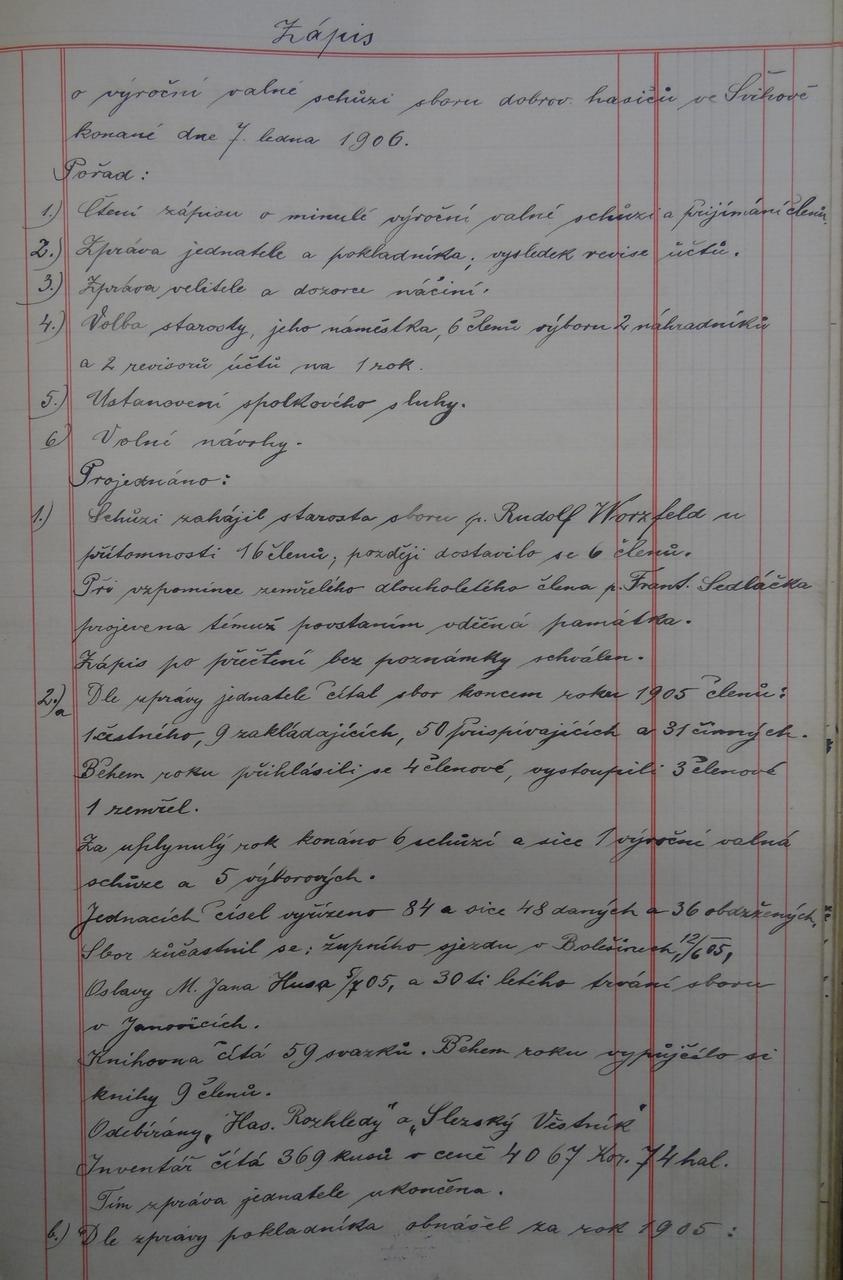 Zápis
o výroční valné schůzi sboru dobrov. hasičů ve Švihově
konané dne 7. ledna 1906.
Pořad:
1.) Čtení zápisu o minulé výroční valné schůzi a přijímání členů.
2.) Zpráva jednatele a pokladníka; vysledek revise účtů.
3.) Zpráva velitele a dozorce náčiní.
4.) Volba starosty, jeho náměstka, 6 členů výboru 2 náhradníků
a 2 revisorů účtů na 1 rok.
5.) Ustanovení spolkového sluhy.
6) Volní návrhy.
Projednáno:
1.) Schůzi zahájil starosta sboru p. Rudolf Worzfeld u
přítomnosti 16 členů; později dostavilo se 6 členů.
Při vzpomínce zemřelého dlouholetého člena p. Frant. Sedláčka
projevena témuž povstaním vděčná památka.
Zápis po přečtení bez poznámky schválen.
2.)a Dle zprávy jednatele čítal sbor koncem roku 1905 členů:
1 čestného, 9 zakládajících, 50 přispívajících a 31 činných.
Během roku přihlásili se 4 členové, vystoupili 3 členové
1 zemřel.
Za uplynulý rok konáno 6 schůzí a sice 1 výroční valná
schůze a 5 výborových.
Jednacích čísel vyřízeno 84 a sice 48 daných a 36 obdržených.
Sbor zúčastnil se: župního sjezdu v Bolešinech, 12/6 05,
Oslavy M. Jana Husa 5/7 05, a 30 ti letého trvání sboru
v Janovicích.
Knihovna čítá 59 svazků. Během roku vypůjčilo si
knihy 9 členů.
Odebírány „Has. Rozhledy" a „Slezský Věstník"
Inventář čítá 369 kusů v ceně 4067 Kor. 74 hal.
Tím zpráva jednatele ukončena.
b.) Dle zprávy pokladníka obnášel za rok 1905: